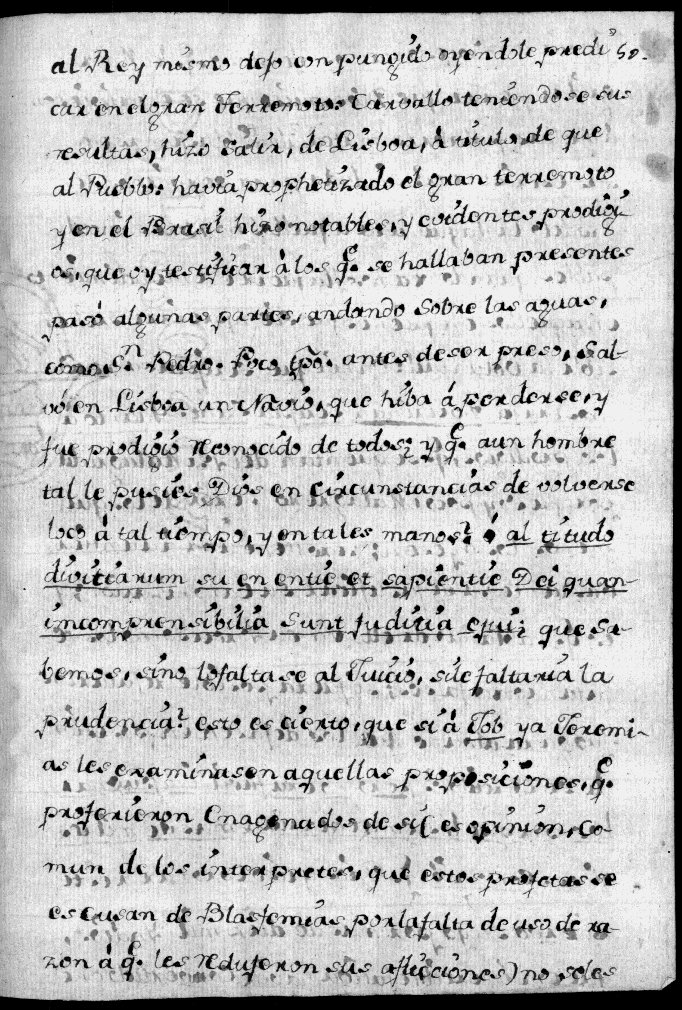 al Rey mismo deso conpungido oyendole predi 50.
car en el gran Terremoto: Carvallo teniendose sus
resultas, hizo salir, de Lisboa, á titulo, de que
al Pueblo: havia prophetizado el gran terremoto
y en el Brasil hizo notables, y evidentes prodigi-
os, que oy testifican á los q.e se hallaban presentes
pasó algunas partes, andando sobre las aguas,
como S.n Pedro. Poco tpo. antes de ser preso, sal-
vó en Lisboa un Navio, que hiba á perderse, y
fue prodigio reconocido de todos; y q.e aun hombre
tal le pusies Dios en circunstancias de volverse
loco á tal tiempo, y en tales manos? ó al titudo
divitiarum su en entie et sapientie Dei quan
incomprensibilia sunt judicia ejui; que sa-
bemos, sino lo faltase al Juicio, sile faltaria la
prudencia? esto es cierto, que si á Job ya Jeremi-
as les examinasen aquellas proposiciones, q.e
profirieron enagenados de si (es opinion, co-
mun de los interpretes, que estos profetas se
escusan de Blasfemias por la falta de uso de ra-
zon á q.e les redujeron sus aflicciones) no seles